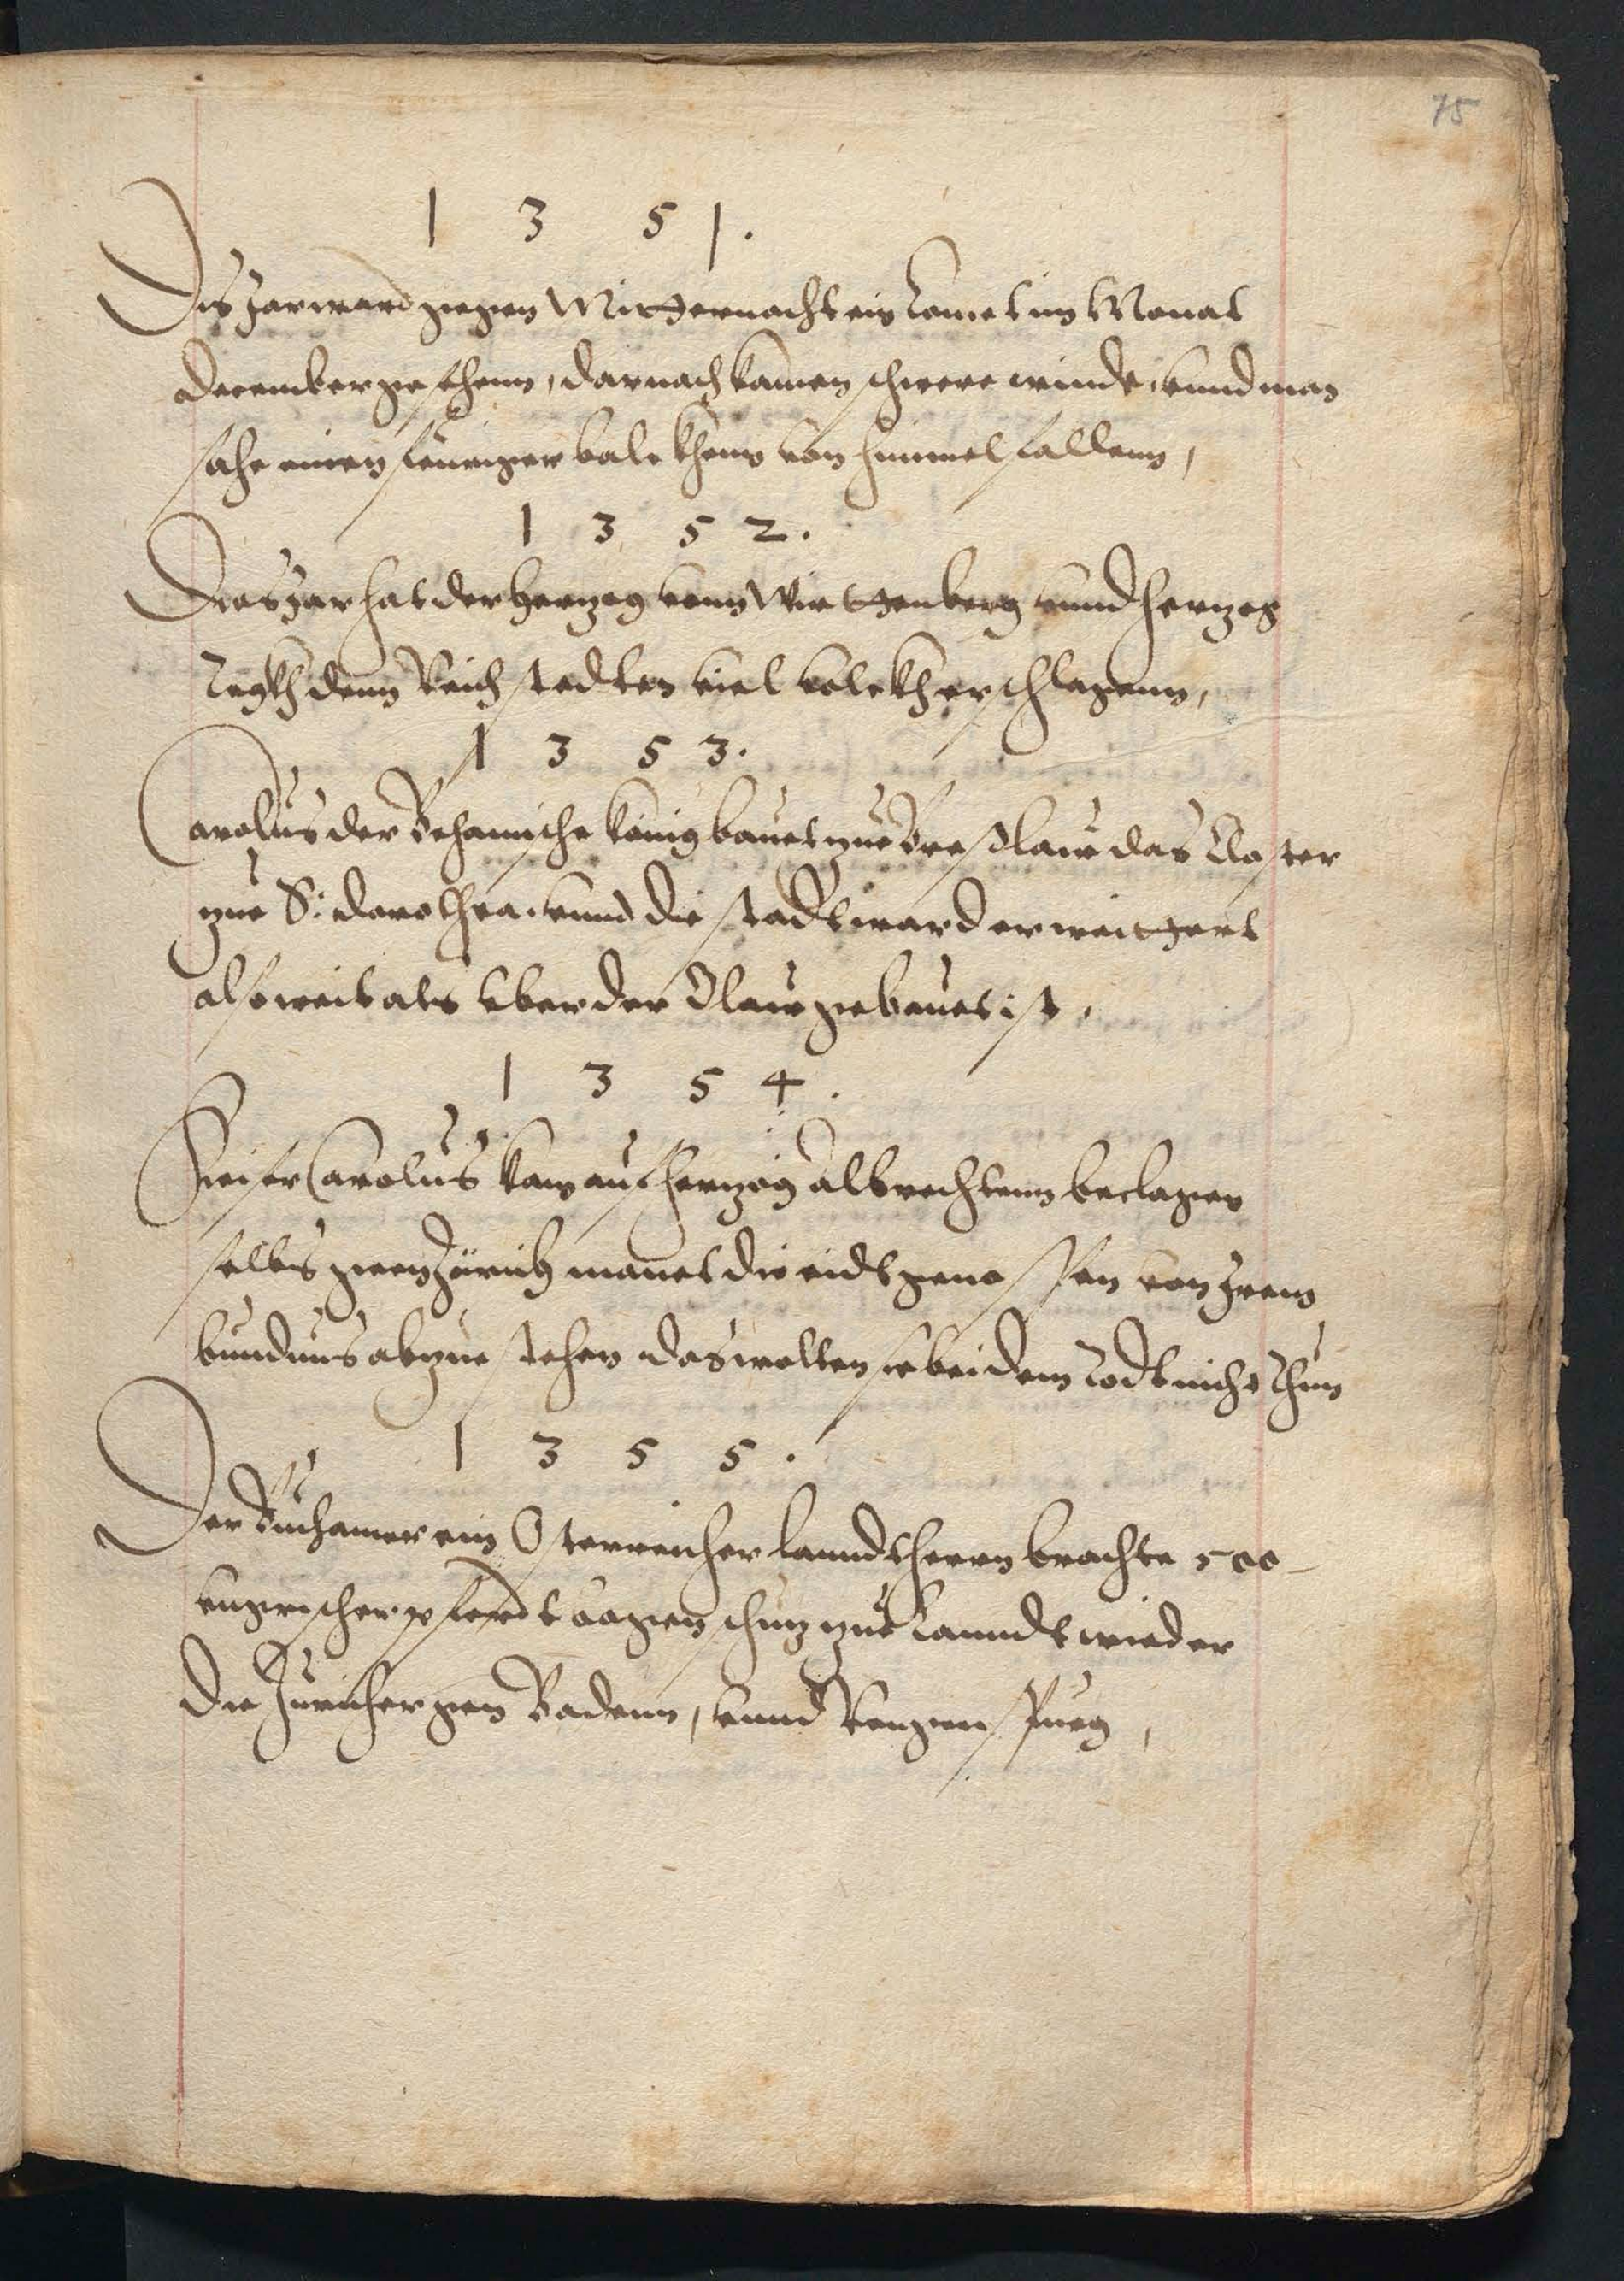 75
1 3 5 1.
Dis Jar ward gegen Mitternacht ein Comet im Monat
december gesehenn, darnach kamen schwere winde, vnnd man
sahe einen feuriger balckhenn von himmel fallenn,
1 3 5 2.
Dies Jar hat der Herzog vonn Wirttenberg vnnd herzog
denn Reich stedten viel volckh erschlagenn,
1 3 5 3.
Carolus der Behamische König bauet zue Breslaw das Closter
zue S: dorothea. vnnd die stadt ward erweittert
also weit als vber der Olaw gebauet ist,
1 3 5 4.
Keiser Carolus kam auf herzog Albrechtenn beclagen
selbs gen Zürich manet die eidtgenossen von Jrem
bundnus abzue stehen das wolten sie bei dem Eidt nicht thun
1 3 5 5.
Der Buchamer ein Osterreicher lanndtherrn brachte 500
vngrischer pferdt bogenschuz zue Lanndt wieder
die Züricher gen Badenn, vnnd Rengenspurg,